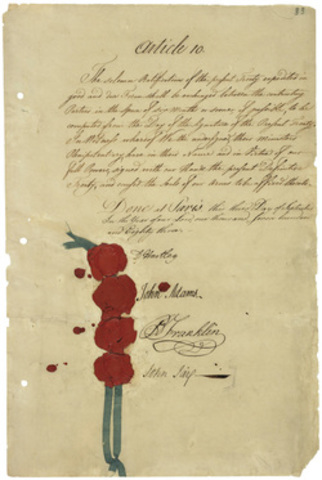 Article 10.
The solemn Ratifications of the present Treaty expedited in
good and due Form shall be exchanged between the contracting
Parties in the Space of Six Months or sooner if possible, to be
computed from the Day of the Signature of the present Treaty.
In Witness whereof We the undersigned, their Ministers
Plenipotentiary, have in their Name and in Virtue of our
full Powers, signed with our Hands the present Definitive
Treaty, and caused the Seals of our Arms to be affixed thereto.
Done at Paris this third Day of September
In the Year of our Lord one thousand, seven hundred
and Eighty three.
D Hartley
John Adams.
B Franklin
John Jay